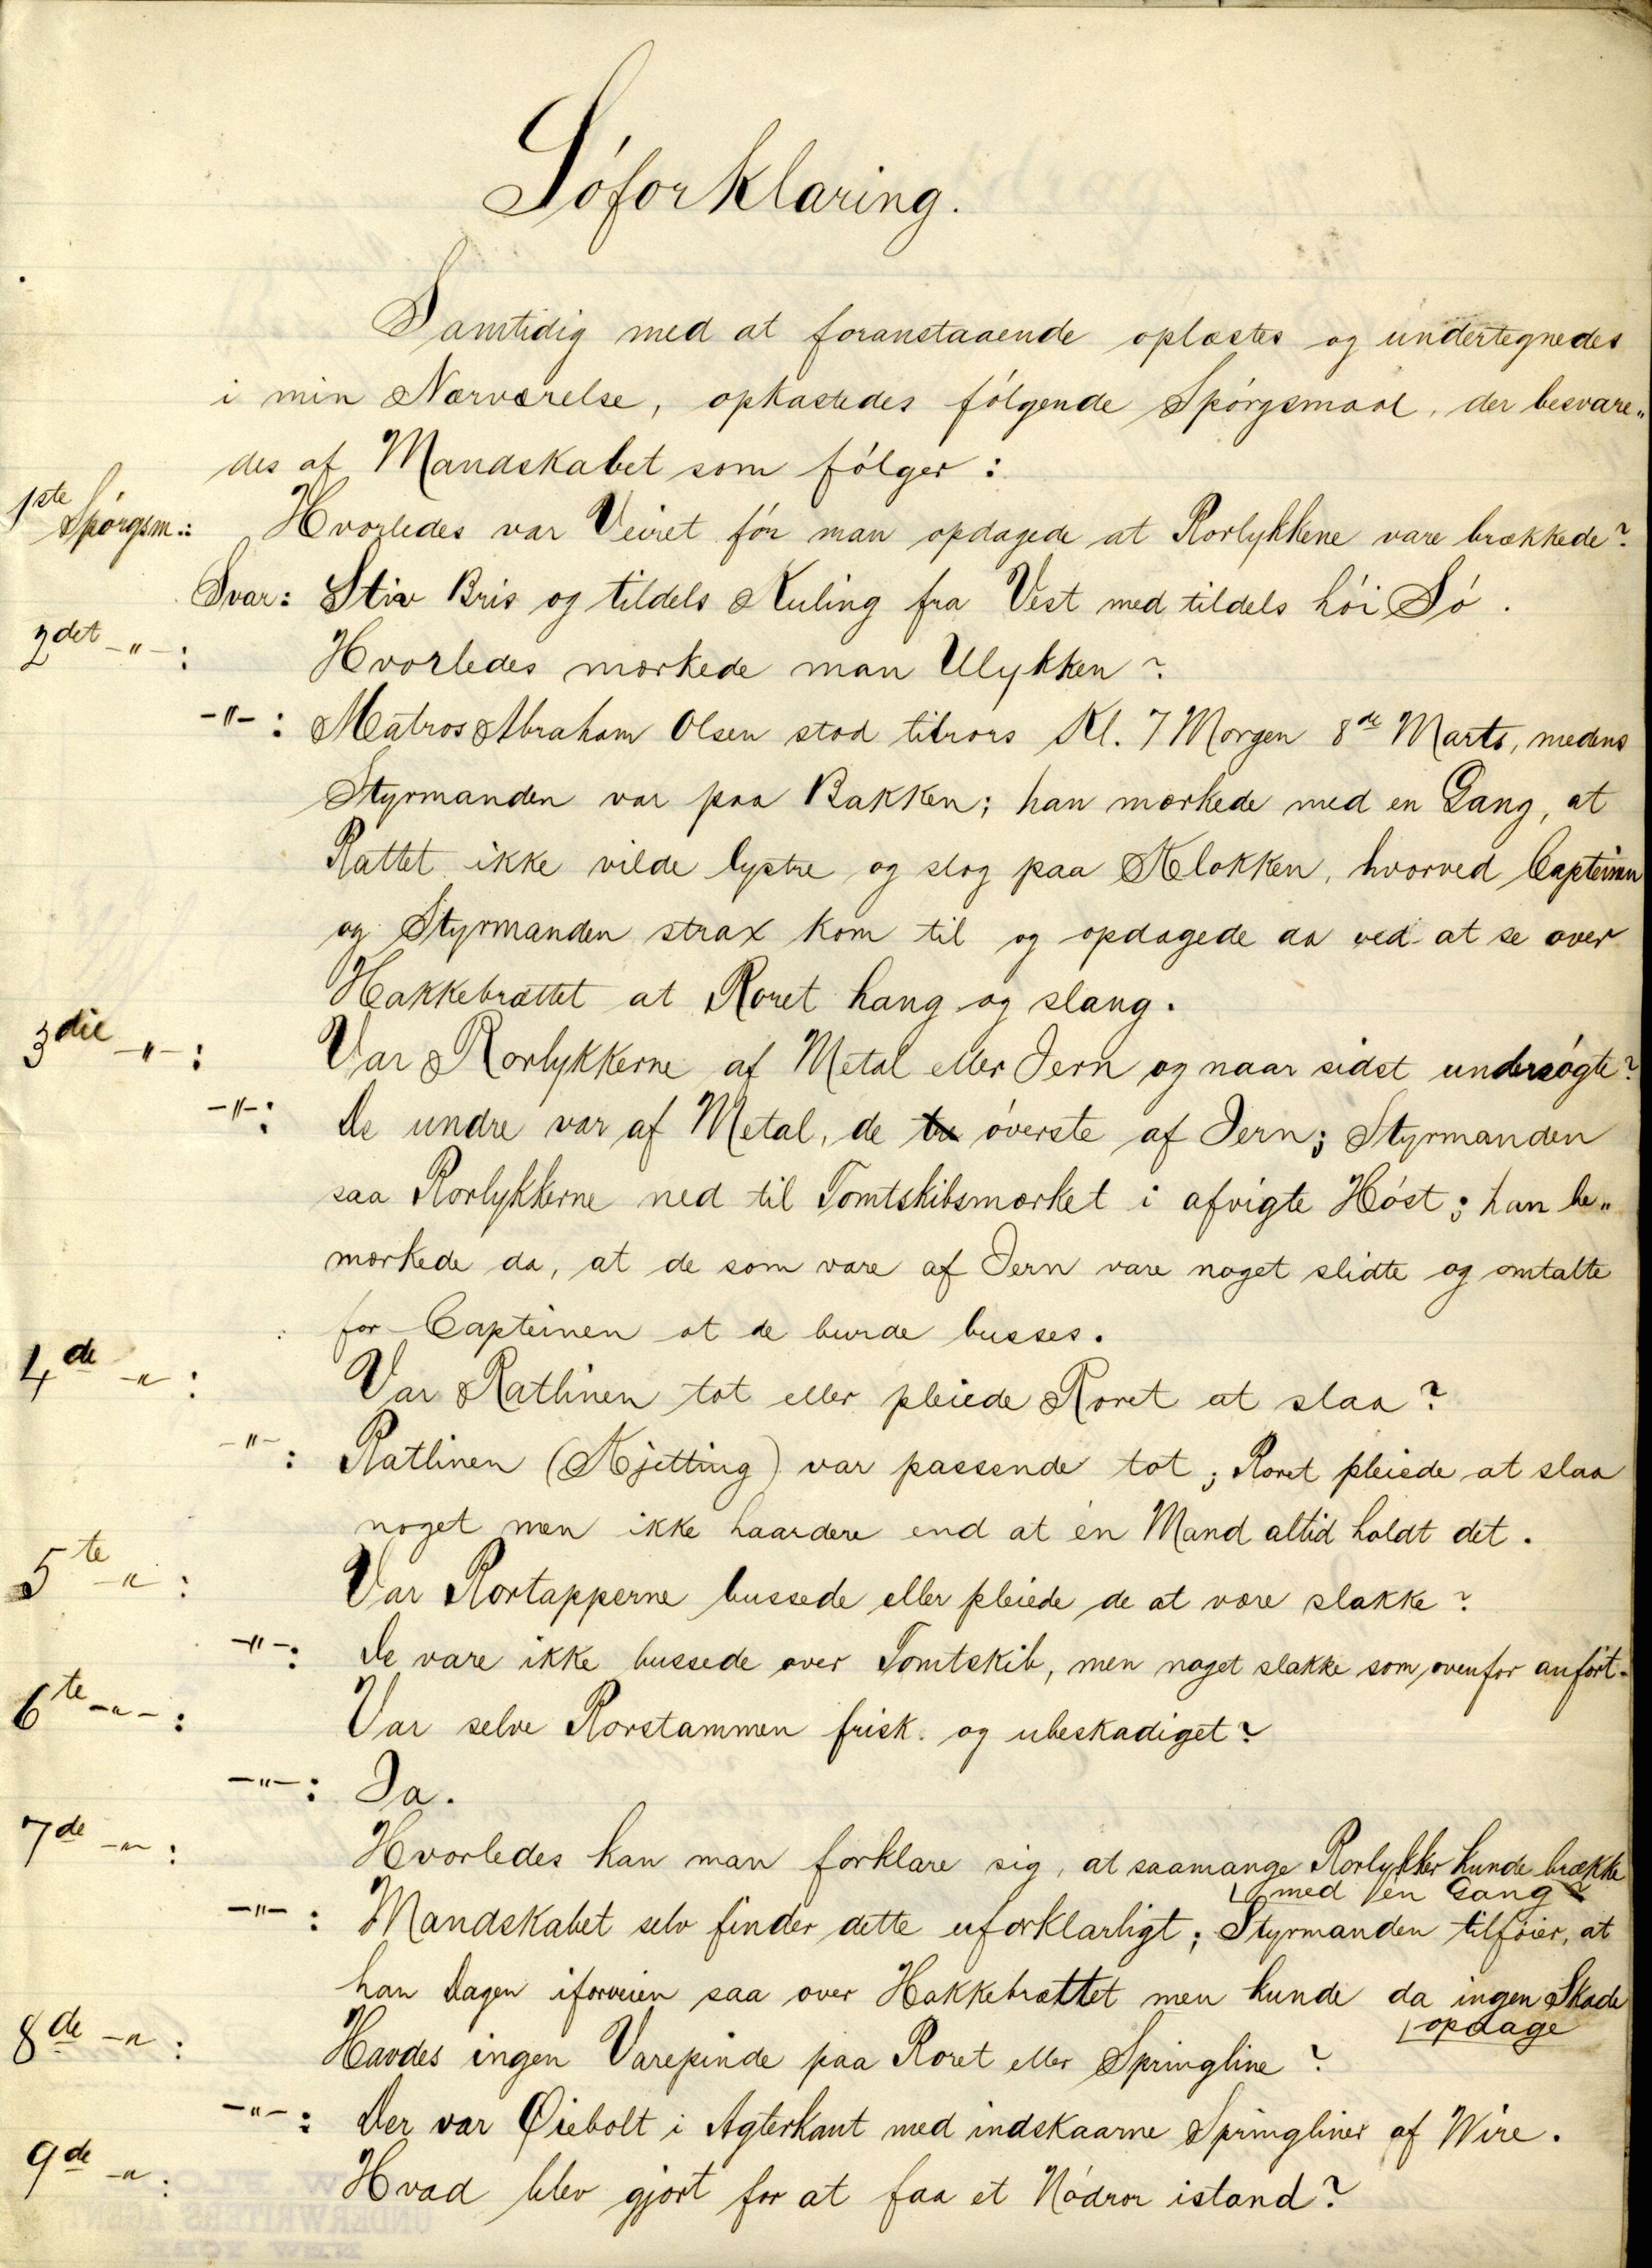 Sóforklaring.
Samtidig med at foranstaaende oplæstes og undertegnedes
i min Nærværelse, opkastedes fólgende Spórgsmaal, der besvare„
des af Mandskabet som fólger :
1ste Spórgsm.: Hvorledes var Veiret fór man opdagede at Rorlykkene vare brækkede?
Svar: Stiv Bris og tildels Kuling fra Vest med tildels hói Só.
2det -"- : Hvorledes mærkede man Ulykken?
-"- : Matros Abraham Olsen stod tilrors Kl. 7 Morgen 8de Marts, medens
Styrmanden var paa Bakken; han mærkede med en Gang, at
Rattet ikke vilde lystre og slog paa Klokken, hvorved Capteinen
og Styrmanden strax kom til og opdagede da ved at se over
Hakkebrættet at Roret hang og slang.
3die -"- : Var Rorlykkerne af Metal eller Jern og naar sidst undersógte?
-"- : De undre var af Metal, de tre óverste af Jern; Styrmanden
saa Rorlykkerne ned til Tomtskibsmærket i afvigte Hóst; han be„
mærkede da, at de som vare af Jern vare noget slidte og omtalte
for Capteinen at de burde busses.
4de -"- : Var Ratlinen tot eller pleiede Roret at slaa?
-"- : Ratlinen (Kjetting) var passende tot; Roret pleiede at slaa
noget men ikke haardere end at én Mand altid holdt det.
5te -"- : Var Rortapperne bussede eller pleiede de at være slakke?
-"- : De vare ikke bussede over Tomtskib, men noget slakke som ovenfor anfórt.
6te -"- : Var selve Rorstammen frisk og ubeskadiget?
-"- : Ja.
7de -"- : Hvorledes kan man forklare sig, at saamange Rorlykker kunde brække
med en Gang?
-"- : Mandskabet selv finder dette uforklarligt; Styrmanden tilfóier, at
han Dagen iforveien saa over Hakkebrættet men kunde da ingen Skade
opdage
8de -"- : Havdes ingen Varepinde paa Roret eller Springline?
-"- : Der var Øiebolt i Agterkant med indskaarne Springliner af Wire.
9de -"- : Hvad blev gjort for at faa et Nódror istand?
UNDERWRITERS
NEW YORK